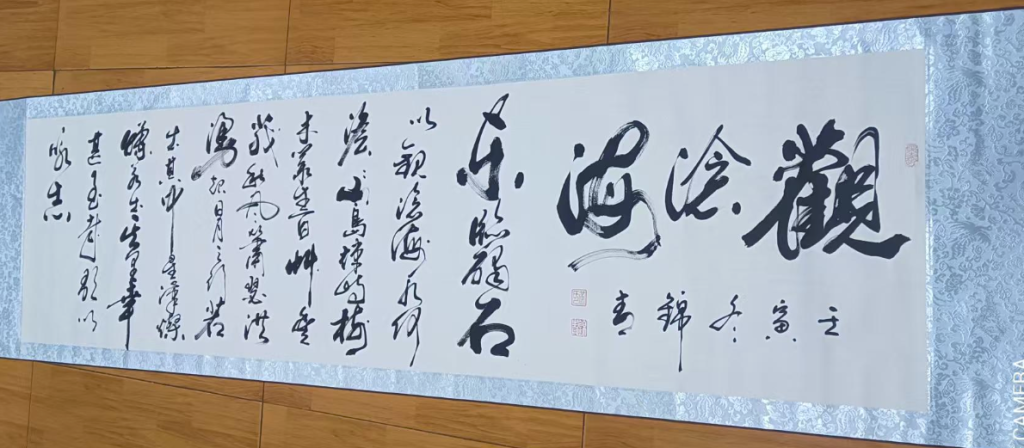 觀滄海
壬寅冬錦青
東臨碣石
以觀滄海水何
澹澹山島竦峙樹
木叢生百艸豐
茂秋風蕭瑟洪
湧起日月之行若
出其中星漢燦
爛若出其里幸
甚至哉歌以
詠志
CAMERA